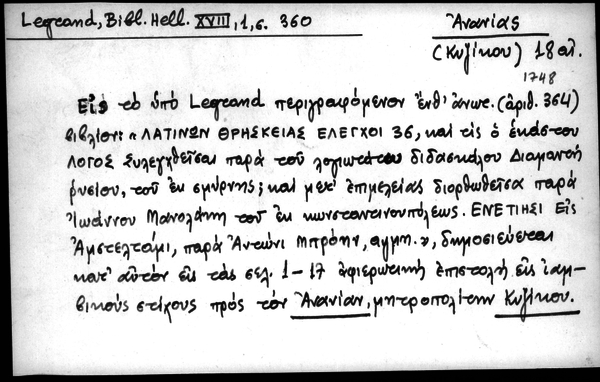 Legrand, Bibl. Hell. XVIII, 1, σ. 360
Ἀνανίας
(Κυζίκου) 18 αἰ.
1748
Εἰς τὸ ὑπὸ Legrand περιγραφόμενον ἔνθ' ἄνωτ. (ἀριθ. 364)
βιβλίον: «ΛΑΤΙΝΩΝ ΘΡΗΣΚΕΙΑΣ ΕΛΕΓΧΟΙ 36, καὶ τις ὁ ἑκάστου
ΛΟΓΟΣ Συλεγχθεῖσαι παρὰ τοῦ λογιωτάτου διδασκάλου Διαμαντῆ
ρυσίου, τοῦ ἐκ σμύρνης; καὶ μετ' ἐπιμελείας διορθωθεῖσα παρὰ
Ἰωάννου Μανολάκη τοῦ ἐκ κωνσταντινουπόλεως. ΕΝΕΤΙΗΣΙ Εἰς
Ἀμστελτάμι, παρὰ Ἀντώνι Μπρόην, αψμη. », δημοσιεύεται
κατ' αὐτὸν εἰς τὰς σελ. 1-17 ἀφιερωτικὴ ἐπιστολὴ εἰς ἰαμ-
βικοὺς στίχους πρὸς τὸν Ἀνανίαν, μητροπολίτην Κυζίκου.